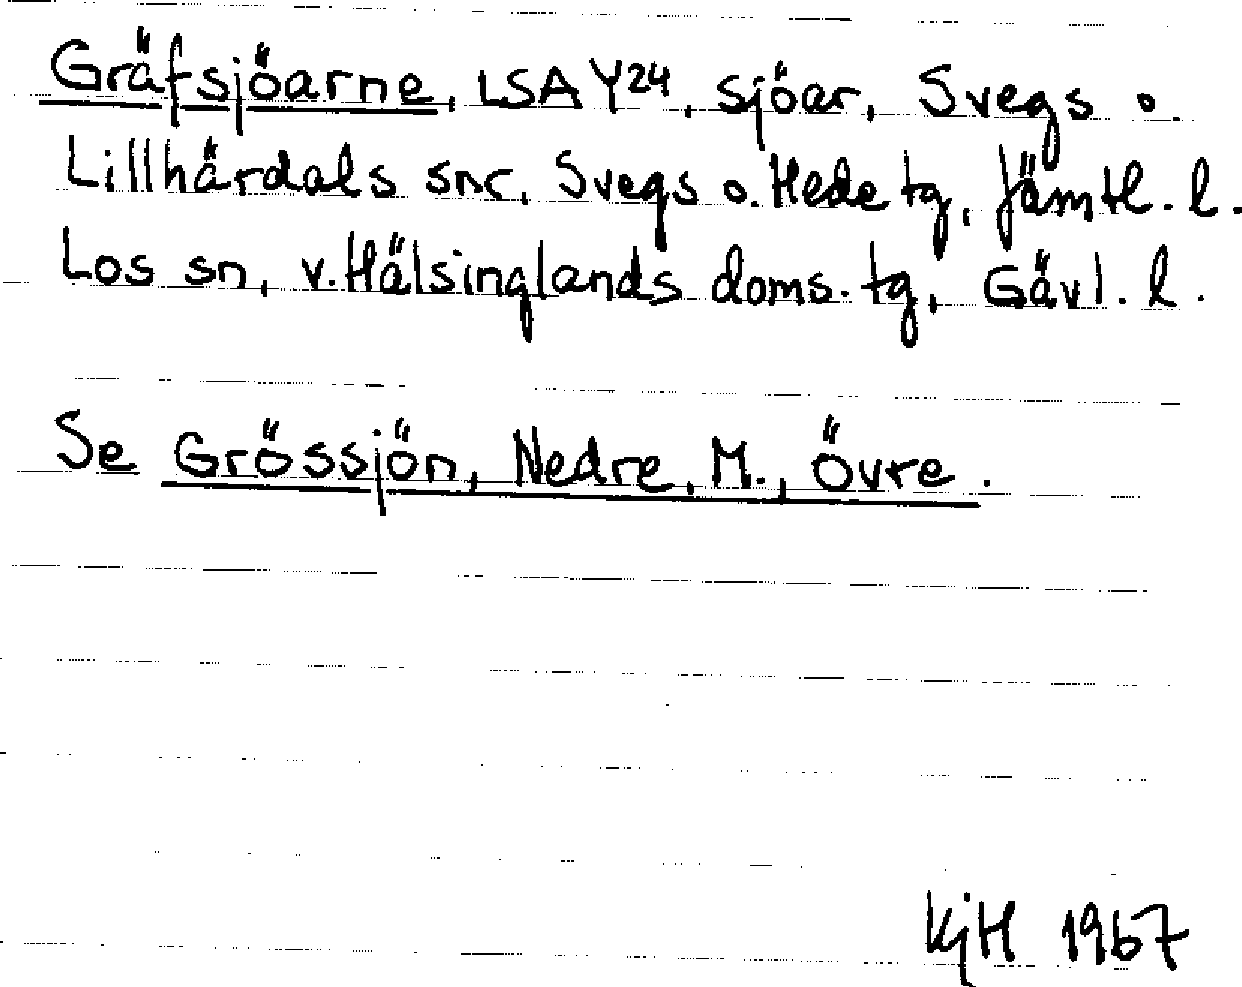 Gräfsjöarne, LSA Y24, sjöar, Svegs o.
Lillhärdals snr, Svegs o. Hede tg, Jämtl. l.
Los sn, v. Hälsinglands doms. tg, Gävl. l.
Se Grössjön, Nedre, M., Övre.
KjH 1967